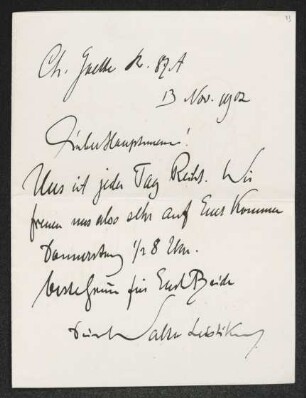 Ch. Goethe St. 87A
13 Nov. 1902
Lieber Hauptmann!
Uns ist jeder Tag Recht. Wir
freuen uns also sehr auf Euer Kommen
Donnerstag 1/2 8 Uhr.
beste Grüsse für Euch Beide
Dein Walter Leistikow